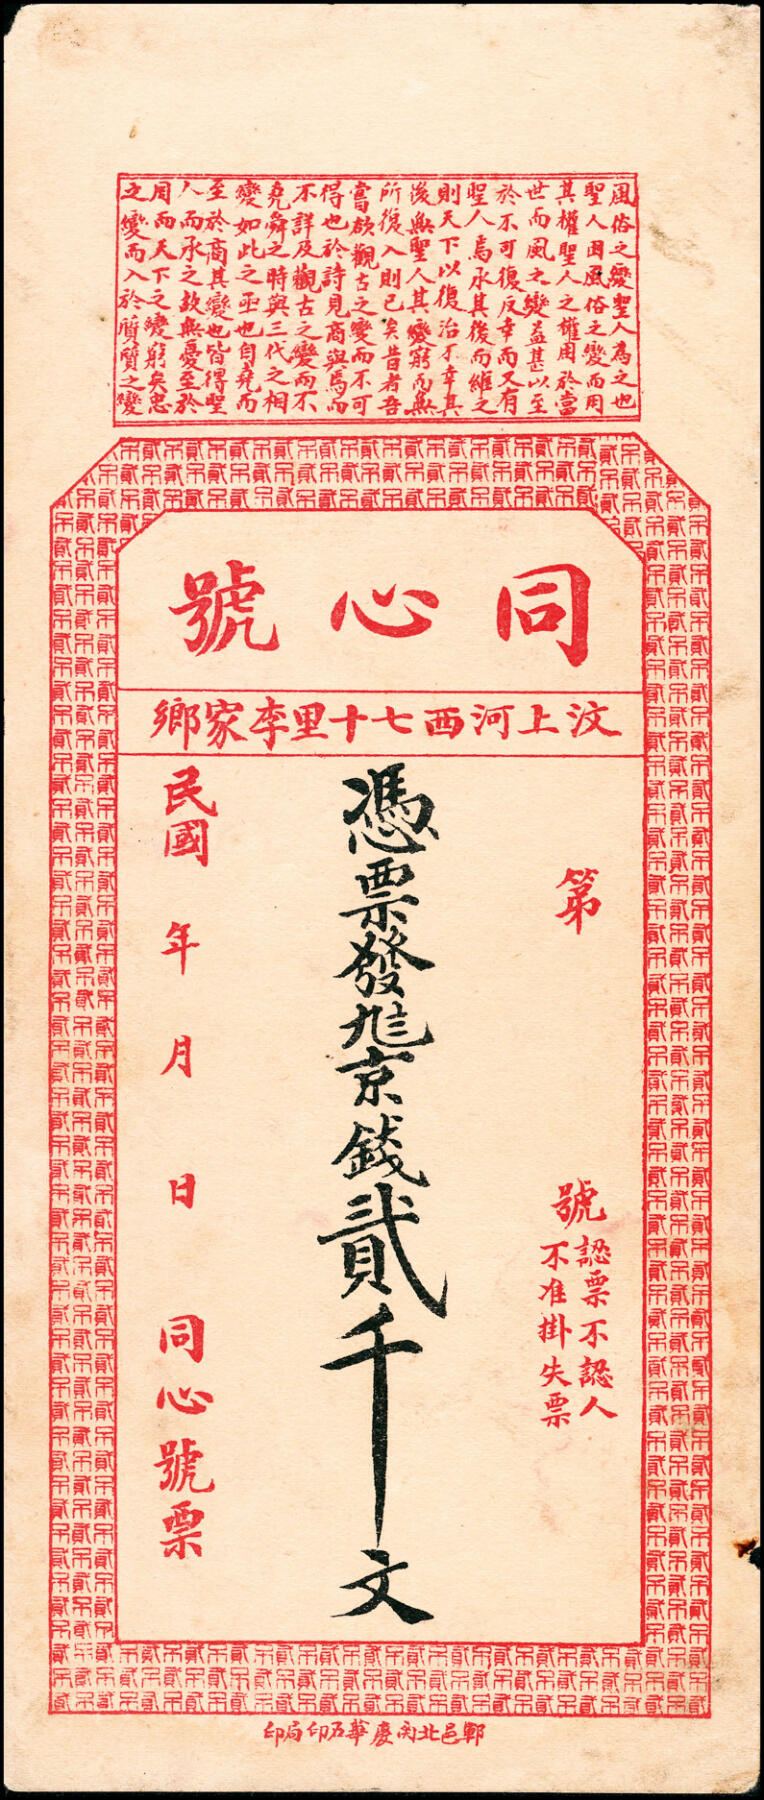 風俗之變聖人為之也
聖人因風俗之變而用
其權聖人之權用於當
世而風之變益甚以至
於不可復反幸而又有
聖人焉承其後而維之
則天下以復治不幸其
後無聖人其變窮而無
所復入則已矣昔者吾
嘗欲觀古之變而不可
得也於詩見商與焉而
不詳及觀古之變而不
堯舜之時與三代之相
變如此之亟也自堯而
至於商其變也皆得聖
人而承之故無憂至於
周而天下之變窮矣忠
之變而入於質質之變
同心號
汶上河西七十里李家鄉
第 號
認票不認人
不准掛失票
憑票發京錢貳千文
民國 年 月 日 同心號票
鄆邑北慶華石印局印